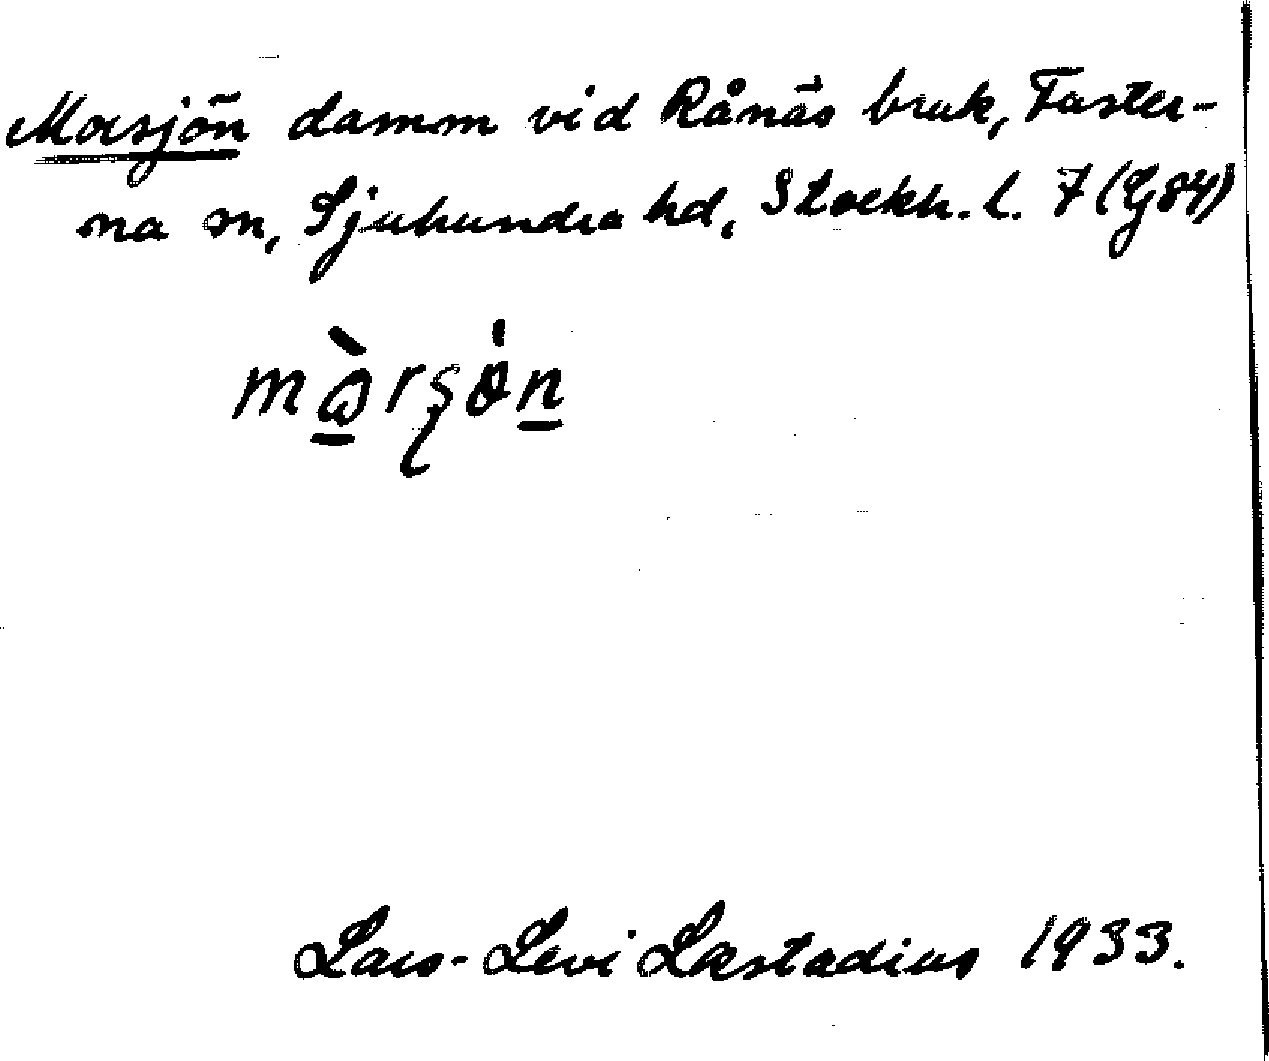 Marsjön damm vid Rånäs bruk, Faster-
na sn, Sjuhundra hd, Stockh. l. 7 (G84)
màrʂön
Lars-Levi Læstadius 1933.